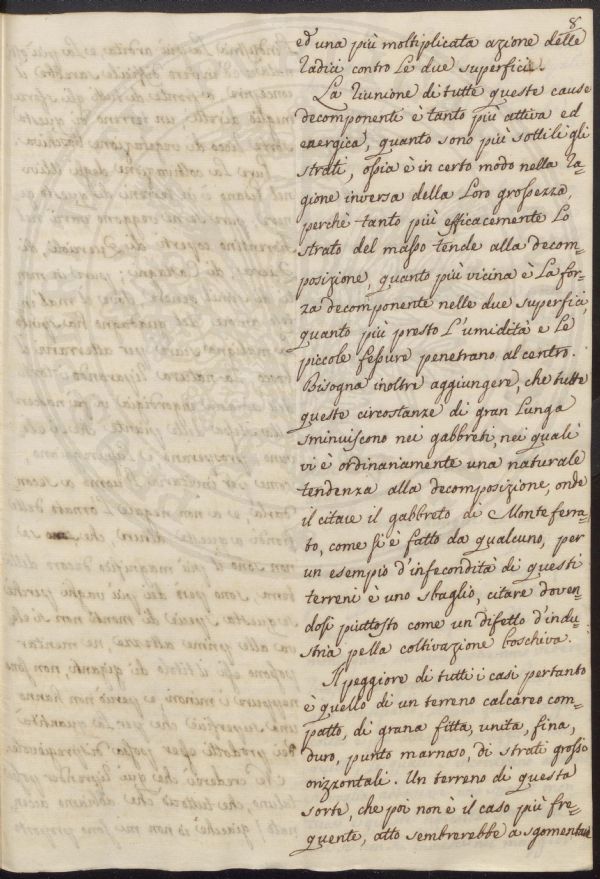 8
ed una più moltiplicata azione delle
radici contro le due superfici.
La riunione di tutte queste cause
decomponenti è tanto più attiva ed
energica, quanto sono più sottili gli
strati, ossia è in certo modo nella ra=
gione inversa della loro grossezza,
perchè tanto più efficacemente lo
strato del masso tende alla decom=
posizione, quanto più vicina è la for=
za decomponente nelle due superfici,
quanto più presto l'umidità e le
piccole fessure penetrano al centro.
Bisogna inoltre aggiungere, che tutte
queste circostanze di gran lunga
sminuiscono nei gabbreti nei quali
vi è ordinariamente una naturale
tendenza alla decomposizione, onde
il citare il gabbreto di Monteferra=
to, come si è fatto da qualcuno, per
un esempio d'infecondità di questi
terreni è uno sbaglio, citare doven=
dosi piuttosto come un difetto d'indu=
stria pella coltivazione boschiva.
Il peggiore di tutti i casi pertanto
è quello di un terreno calcareo com=
patto, di grana fitta, unita, fina,
duro, punto marnoso, di strati grossi
orizzontali. Un terreno di questa
sorte, che poi non è il caso più fre=
quente, atto sembrerebbe a sgomentare